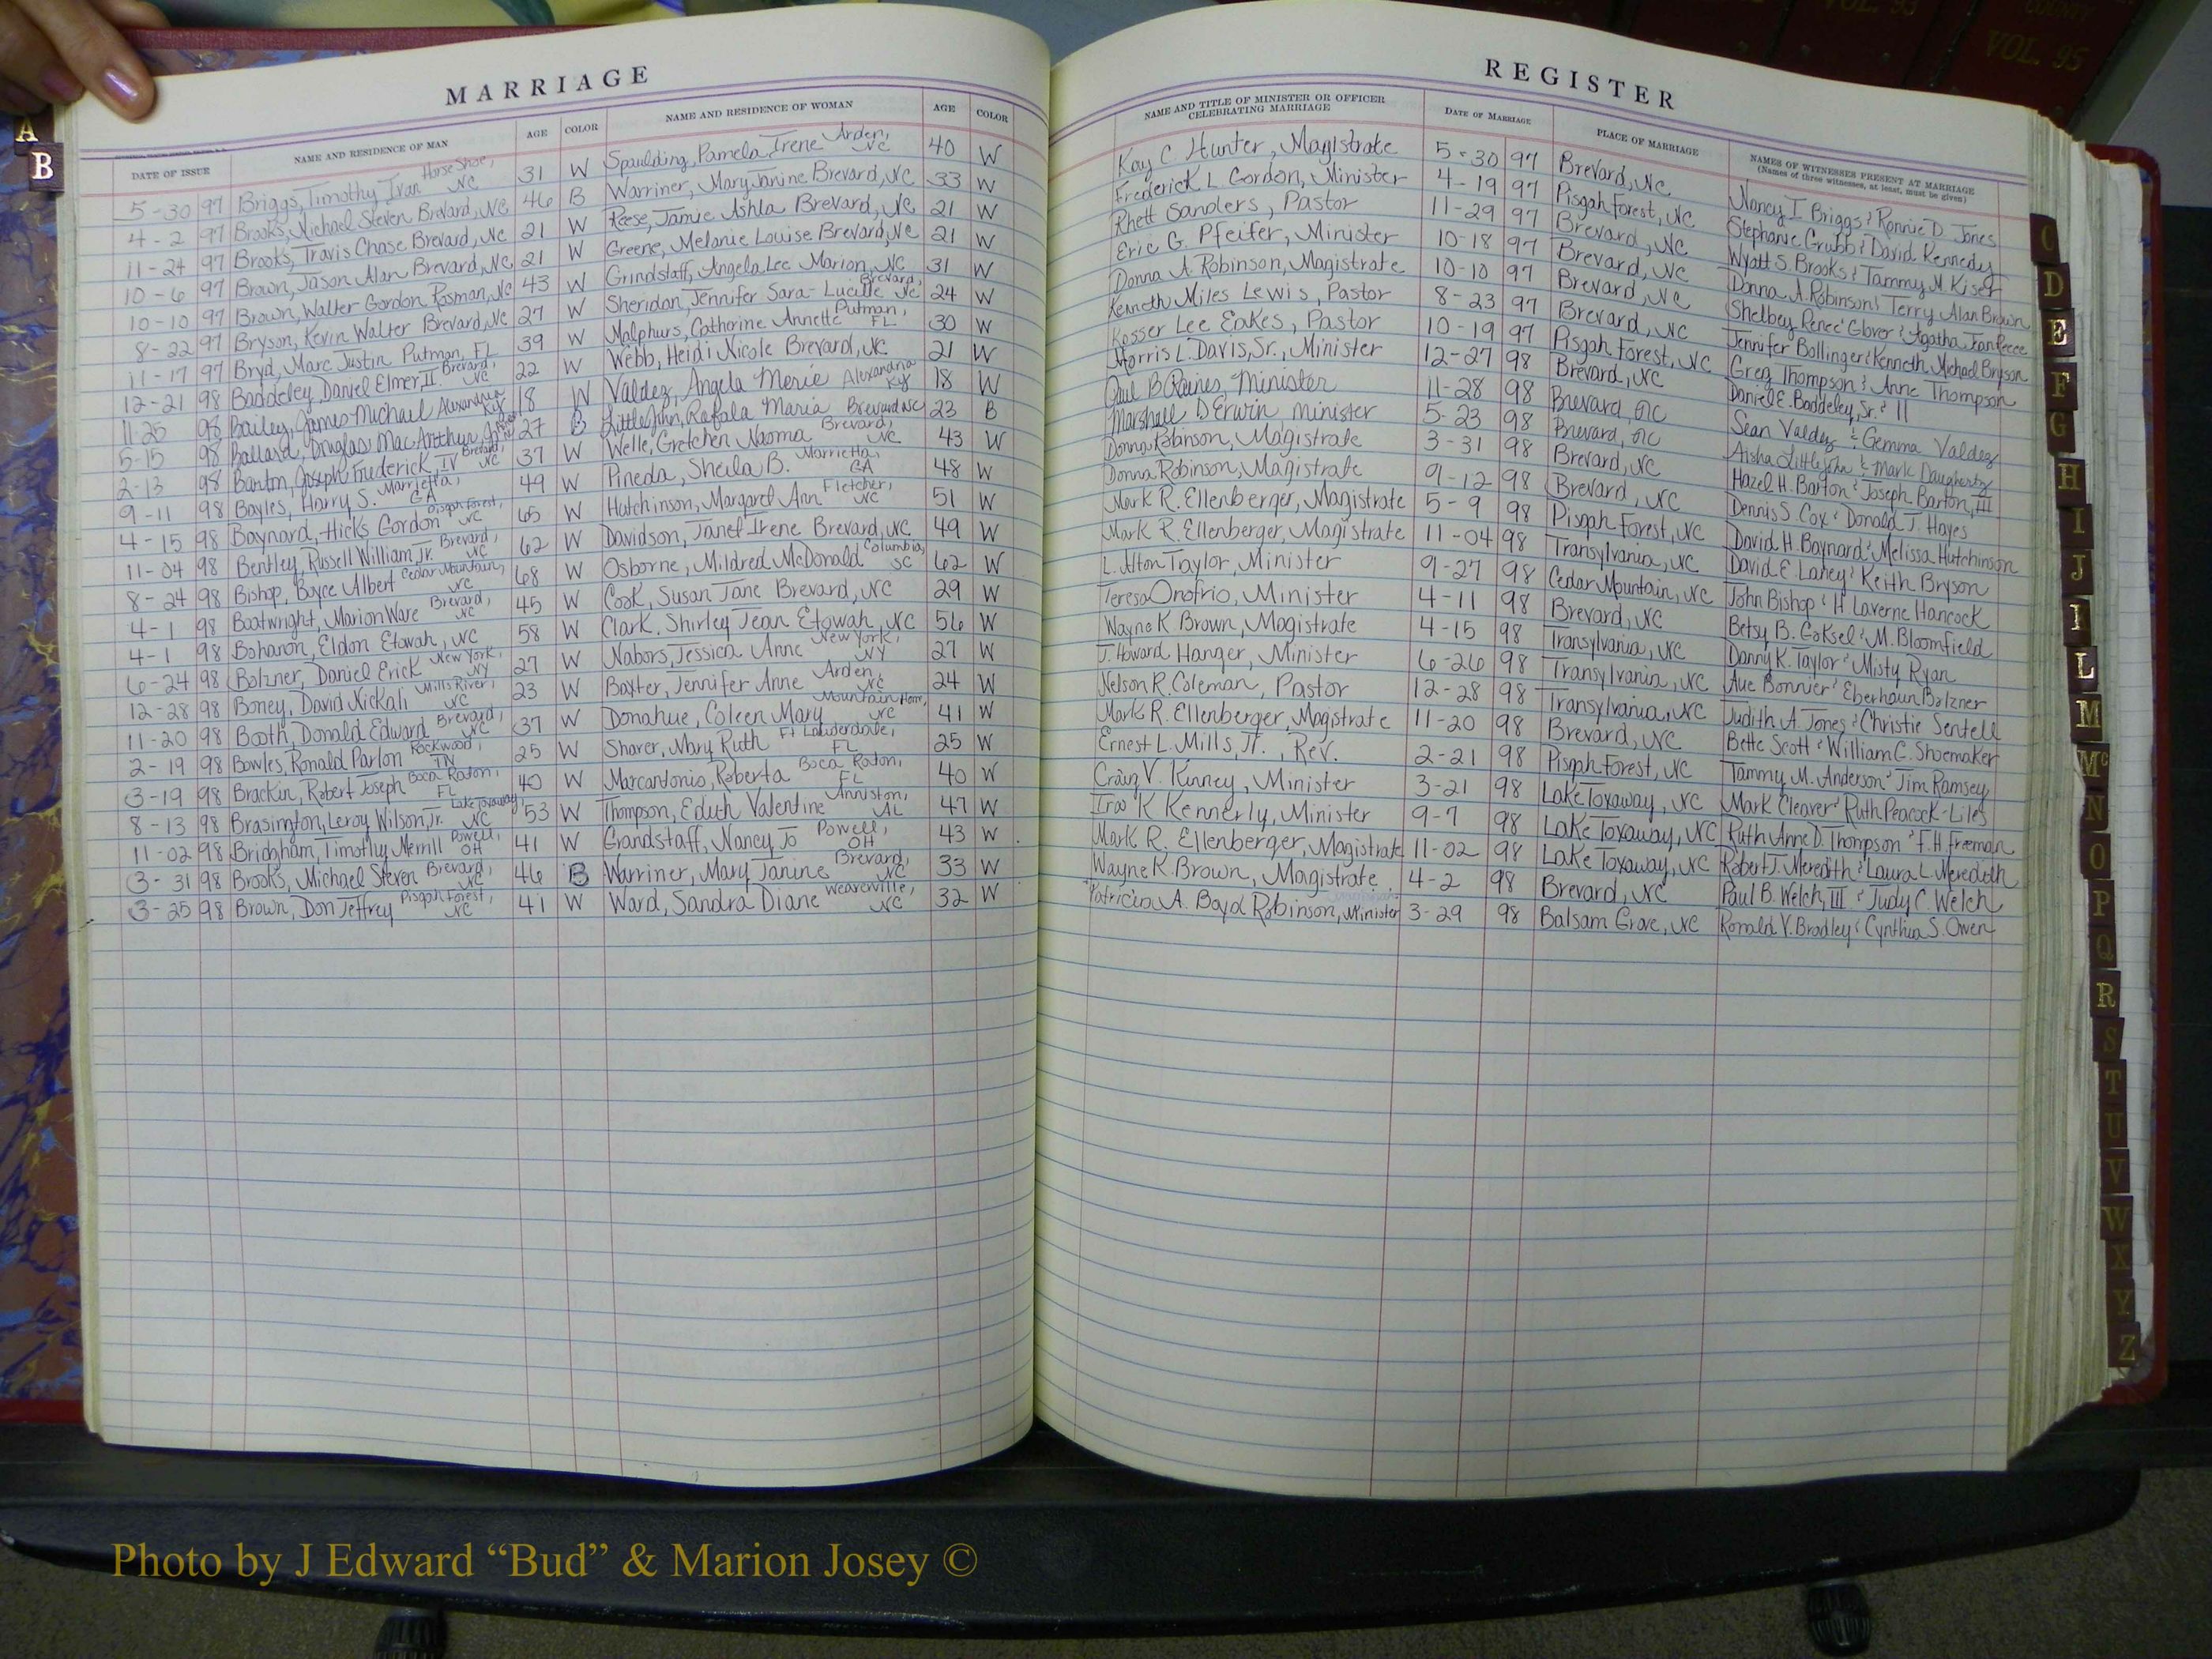 MARRIAGE REGISTER
DATE OF ISSUE NAME AND RESIDENCE OF MAN AGE COLOR NAME AND RESIDENCE OF WOMAN AGE COLOR NAME AND TITLE OF MINISTER OR OFFICER CELEBRATING MARRIAGE DATE OF MARRIAGE PLACE OF MARRIAGE NAMES OF WITNESSES PRESENT AT MARRIAGE (Names of three witnesses, at least, must be given)
5-30 97 Briggs, Timothy Ivan Horse Shoe, NC 31 W Spaulding, Pamela Irene Arden, NC 40 W Kay C Hunter, Magistrate 5-30 97 Brevard, NC Nancy I Briggs & Ronnie D. Jones
4-2 97 Brooks, Michael Steven Brevard, NC 46 B Warriner, Mary Janine Brevard, NC 33 W Frederick L Gordon, Minister 4-19 97 Pisgah Forest, NC Stephanie Grubb & David Kennedy
11-24 97 Brooks, Travis Chase Brevard, NC 21 W Reese, Jamie Ashla Brevard, NC 21 W Rhett Sanders, Pastor 11-29 97 Brevard, NC Wyatt S. Brooks & Tammy M Kiser
10-6 97 Brown, Jason Alan Brevard, NC 21 W Greene, Melanie Louise Brevard, NC 21 W Eric G. Pfeifer, Minister 10-18 97 Brevard, NC Donna A. Robinson & Terry Alan Brown
10-10 97 Brown, Walter Gordon Rosman, NC 43 W Grindstaff, Angela Lee Marion, NC 31 W Donna A. Robinson, Magistrate 10-10 97 Brevard, NC Shelbey Renee Glover & Agatha Jan Reece
8-22 97 Bryson, Kevin Walter Brevard, NC 27 W Sheridan, Jennifer Sara-Lucille Brevard, NC 24 W Kenneth Miles Lewis, Pastor 8-23 97 Brevard, NC Jennifer Bollinger & Kenneth Michael Bryson
11-17 97 Bryd, Marc Justin Putman, FL 39 W Malphurs, Catherine Annette Putman, FL 30 W Kosser Lee Eakes, Pastor 10-19 97 Pisgah Forest, NC Greg Thompson & Anne Thompson
12-21 98 Baddeley, Daniel Elmer II Brevard, NC 22 W Webb, Heidi Nicole Brevard, NC 21 W Norris L. Davis, Sr., Minister 12-27 98 Brevard, NC Daniel E. Baddeley, Sr. & 11
11-25 98 Bailey, James Michael Alexandria KY 18 W Valdez, Angela Merie Alexandria KY 18 W Paul B Raines, Minister 11-28 98 Brevard, NC Sean Valdez & Gemma Valdez
5-15 98 Ballard, Douglas MacArthur, 27 B Littlejohn, Rafala Maria Brevard NC 23 B Marshall D Erwin minister 5-23 98 Brevard, NC Aisha Littlejohn & Mark Daugherty
2-13 98 Barton, Joseph Frederick, IV Brevard, NC 37 W Welle, Gretchen Naoma Brevard, NC 43 W Donna Robinson, Magistrate 3-31 98 Brevard, NC Hazel H. Barton & Joseph Barton, III
9-11 98 Bayles, Harry S. Marrietta, GA 49 W Pineda, Sheila B. Marrietta, GA 48 W Donna Robinson, Magistrate 9-12 98 Brevard, NC Dennis S. Cox & Donald J. Hayes
4-15 98 Baynard, Hicks Gordon Pisgah Forest, NC 65 W Hutchinson, Margaret Ann Fletcher, NC 51 W Mark R. Ellenberger, Magistrate 5-9 98 Pisgah Forest, NC David H. Baynard & Melissa Hutchinson
11-04 98 Bentley, Russell William, Jr. Brevard, NC 62 W Davidson, Janet Irene Brevard, NC 49 W Mark R. Ellenberger, Magistrate 11-04 98 Transylvania, NC David E Lahey & Keith Bryson
8-24 98 Bishop, Boyce Albert Cedar Mountain, NC 68 W Osborne, Mildred McDonald Columbia, SC 62 W L. Alton Taylor, Minister 9-27 98 Cedar Mountain, NC John Bishop & H Laverne Hancock
4-1 98 Boatwright, Marion Ware Brevard, NC 45 W Cook, Susan Jane Brevard, NC 29 W Teresa Onofrio, Minister 4-11 98 Brevard, NC Betsy B. Goksel & M. Bloomfield
4-1 98 Bohanon, Eldon Etowah, NC 58 W Clark, Shirley Jean Etowah, NC 56 W Wayne K Brown, Magistrate 4-15 98 Transylvania, NC Danny K. Taylor & Misty Ryan
6-24 98 Bolzner, Daniel Erick New York, NY 27 W Nabors, Jessica Anne New York, NY 27 W J. Howard Hanger, Minister 6-26 98 Transylvania, NC Bonner & Eberhaun Bolzner
12-28 98 Boney, David Nickali Mills River, NC 23 W Baxter, Jennifer Anne Arden, NC 24 W Nelson R. Coleman, Pastor 12-28 98 Transylvania, NC Judith A. Jones & Christie Sentell
11-20 98 Booth, Donald Edward Brevard, NC 37 W Donahue, Coleen Mary Mountain Home, NC 41 W Mark R. Ellenberger, Magistrate 11-20 98 Brevard, NC Bette Scott & William C. Shoemaker
2-19 98 Bowles, Ronald Parlon Rockwood, TN 25 W Sharer, Mary Ruth Ft Lauderdale, FL 25 W Ernest L. Mills, Jr., Rev. 2-21 98 Pisgah Forest, NC Tammy M. Anderson & Jim Ramsey
3-19 98 Brackin, Robert Joseph Boca Raton, FL 40 W Marcantonio, Roberta Boca Raton, FL 40 W Craig V. Kinney, Minister 3-21 98 Lake Toxaway, NC Mark Cleaver & Ruth Peacock-Liles
8-13 98 Brasington, Leroy Wilson, Jr. Lake Toxaway, NC 53 W Thompson, Edith Valentine Anniston, AL 47 W Ira K Kennerly, Minister 9-7 98 Lake Toxaway, NC Ruth Anne D. Thompson & F.H. Freeman
11-02 98 Bridgham, Timothy Merrill Powell, OH 41 W Grandstaff, Nancy Jo Powell, OH 43 W Mark R. Ellenberger, Magistrate 11-02 98 Lake Toxaway, NC Robert J. Meredith & Laura L. Meredith
3-31 98 Brooks, Michael Steven Brevard, NC 46 B Warriner, Mary Janine Brevard, NC 33 W Wayne K. Brown, Magistrate 4-2 98 Brevard, NC Paul B. Welch, III & Judy C. Welch
3-25 98 Brown, Don Jeffrey Pisgah Forest, NC 41 W Ward, Sandra Diane Weaverville, NC 32 W Patricia A. Boyd Robinson, Minister 3-29 98 Balsam Grove, NC Ronald V. Bradley & Cynthia S. Owen
A
B
C
D
E
F
G
H
I
J
L
M
Mc
N
O
P
Q
R
S
T
U
V
W
X
Y
Z
COUNTY
VOL. 93
VOL. 95
Photo by J Edward “Bud” & Marion Josey ©